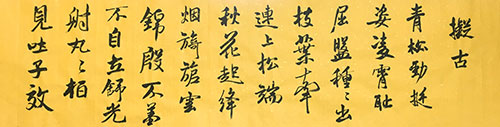 擬古
青松勁挺
姿凌霄耻
屈盤種々出
枝葉牽
連上松端
秋花起絳
烟旖旎雲
錦殷不羞
不自立舒光
射丸々柏
見吐子效